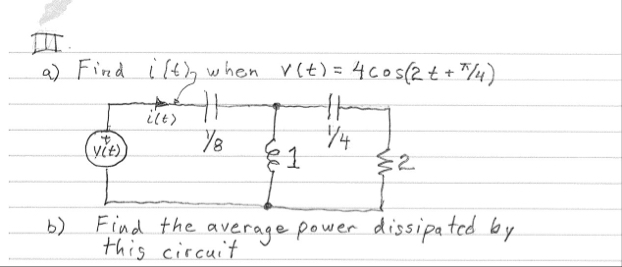 III.
a) Find i(t), when v(t) = 4cos(2t + π/4)
i(t)
+
v(t)
1/8
1
1/4
2
b) Find the average power dissipated by
this circuit